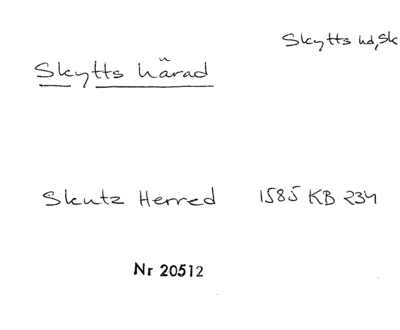 Skytts hd, Sk
Skytts härad
Skutz Herred 1585 KB 234
Nr 20512